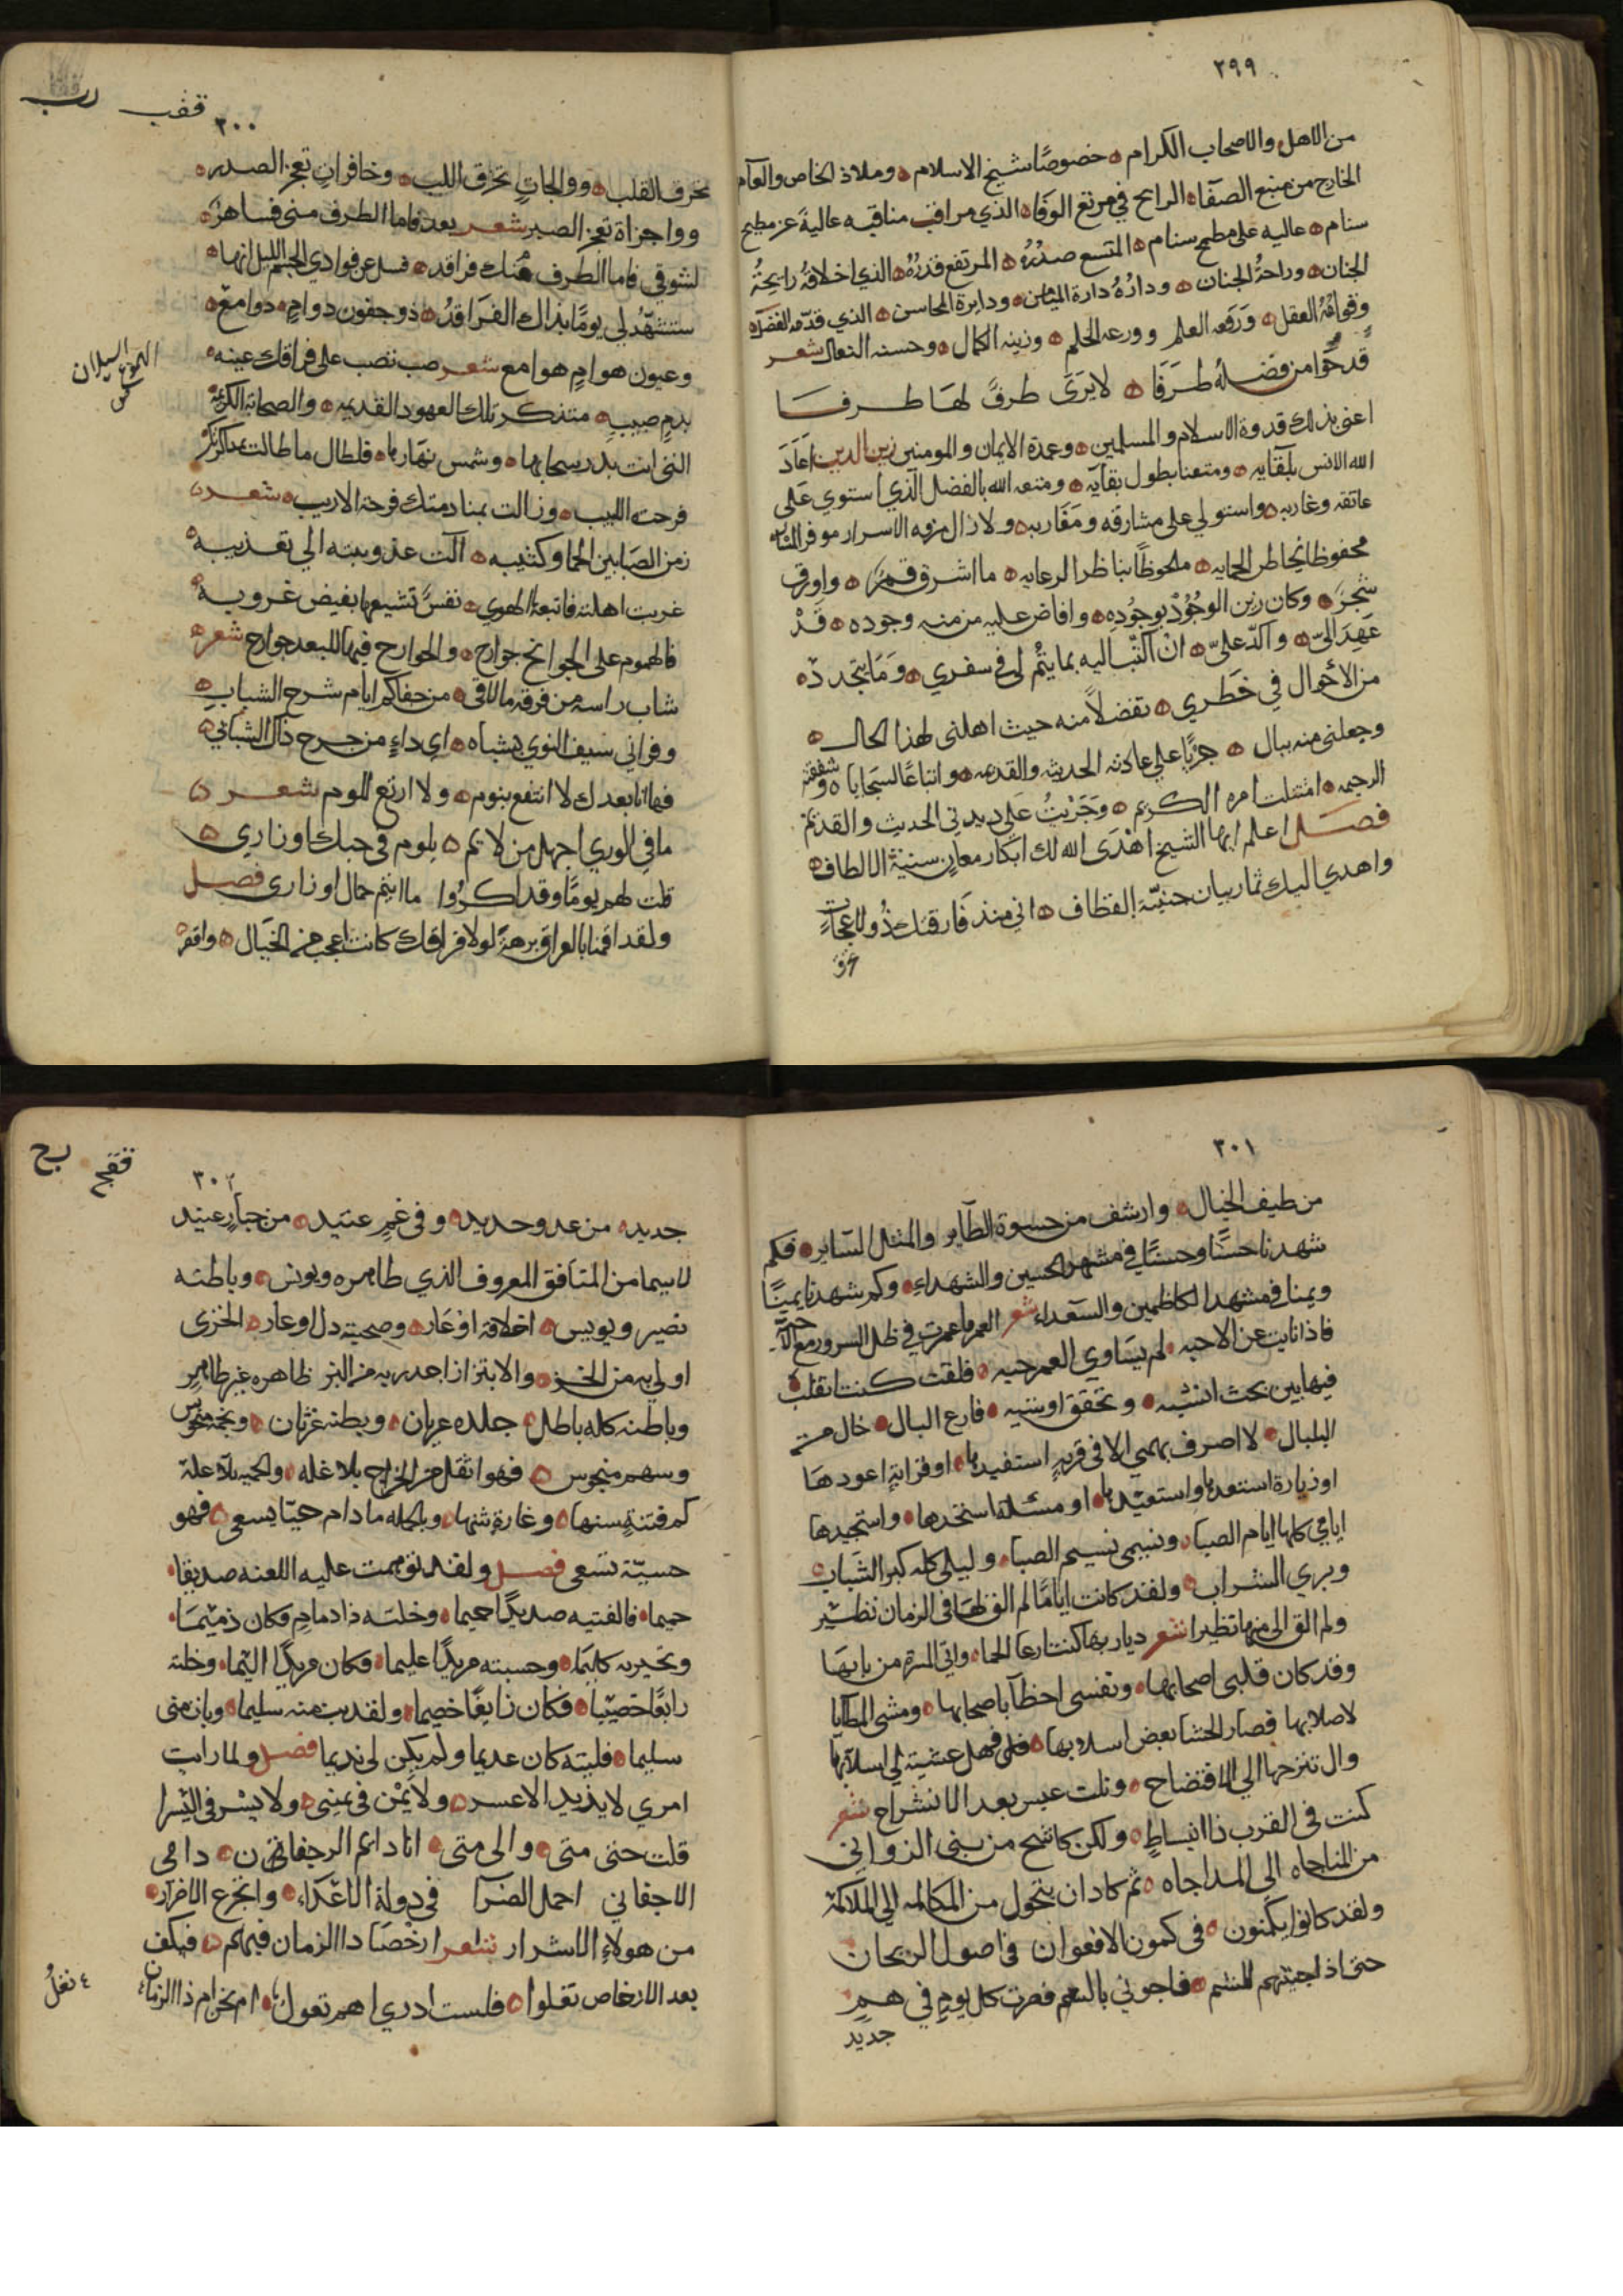 ٢٩٩
من الاهل والاصحاب الكرام ه خصوصًا شيخ الاسلام ه وملاذ الخاص والعآم
الخارج من منبع الصفآء ه الرايح في مرتع الوفاء ه الذي مراقب مناقبه عالية عن مطمح
سنام ه عاليه على مطمح سنام ه المتسع صدره ه المرتفع قدره ه الذي اخلاقه رايحةُ
الجنان ه وراحةُ الجنان ه ودارُهُ دارة الميامن ه ودايرة المحاسن ه الذي قدّمه الفضل ه
وفخامةُ العقل ه وَرَفعه العلم وورعه الحلم ه وزينه الكمال ه وحسنه النعال شعر
قد حوٰا من فضله طرَفا ه لا يَرَى طرفٌ لها طرفا
اعني بذلك قدوة الاسلام والمسلمين ه وعمدة الايمان والمومنين زين الدين اعَادَ
الله الانس بلقآيه ه ومتعنا بطول بقآيه ه ومتعه الله بالفضل الذي استوي عَلى
عاتقه وغاربه ه واستولي على مشارقه ومَغَاربه ه ولا زال منزه الاسرار موفر المبارّ
محفوظا بخاطر الحمايه ه ملحوظًا بناظر الرعايه ه ما اشرق قمرٌ ه واورق
شَجرٌ ه وكان زين الوجُوْد بوجُودِه ه وافاض عليه من منه وجوده ه قَدْ
عَهِدَ اليّ ه واكدّ عليّ ه انْ اكتُبَ اليه بما يتمْ لي في سفري ه وَمَا يتجددّ ه
من الأحوال في خَطَري ه تفضلاً منه حيث اهلني لهذا الحال ه
وجعلني منه ببال ه جريًا علي عادته الحديثه والقديمه ه واتباعًا لسجاياه وشفقته
الرحيمه ه امتثلت امره الكريم ه وَجَرَيتُ عَلى ديدني الحديث والقديم
فصَل اعلم ايها الشيخ اهْدَى الله لك ابكار معانٍ سنية الالطاف ه
واهدي اليك ثمار بيان جنيّة القطاف ه اني منذ فَارقتك ذُو لاعجاتٍ
تحرق
٣٠٠
ققب
رب
تحرق القلب ه ووالجاتٍ تخرق اللب ه وخافراتٍ تعجز الصدر ه
وواجزاة تعجز الصبر شعر بعد فاما الطرف مني فساهرٌ ه
لشوقي فاما الطرف منك فراقد ه فسل عن فوادي الجم الليل انها ه
ستشهدُ لي يومًا بذاك الفَرَاقدُ ه ذو جفون دوامٍ ه دوامع ه
وعيون هوامٍ هوامع شعر صب تصب على فراقك عينه ه
الهموع السيلان
بدمٍ صبيب ه متذكر تلك العهود القديمه ه والصحابة الكريمه ه
التي انت بدر سحابها ه وشمس نهارها ه فلطال ما طالت بمذاكرتك
فرحت اللبيب ه وزالت بمنادمتك فرحة الاريب ه شعر
زمن الصَبَا بين الحما وكثيبه ه آلت عذوبته الي تعذيبه ه
غربت اهلته فاتبعه الهوي ه نفسٌ تشيعها بفيض غروبه ه
فالهموم على الجوانح جوارح ه والجوارح فيها للبعد جوارح شعر ه
شاب راسه من فرقه ما لاقي ه من جفاكم ايام شرح الشبابِ ه
وفراني سيف النوي بشباه ه ايُ داءٍ من جرح ذاك الشباتي ه
فها انا بعدك لا انتفع بنوم ه ولا ارتع للوم شعر ه
ما في الوري اجهل من لايم ه يلوم في حبك اوزاري ه
قلت لهم يومًا وقد اكثروا ما انتم حمال اوزاري فصل
ولقد اقمنا بالعراق برهة لولا فراقك كانت اعجب من الخيَال ه واقفر ه
٣٠١
من طيف الخيال ه وارشف من حسوة الطآير والمثل السَاير ه فكم
شهدنا حسَنًا وحسنًا في مشهد الحسين والشهداءِ ه وكم شهدنا يمينًا
ويمنا في مشهد الكاظمين والسَعداء شعر العمر ما عمرت في ظل السرور مع الا حبه
فاذا نايت عن الاحبه ه لم يسَاوي العمر حبه ه فلقت كنت اتقلب
فيها بين بحث انشيه ه وتحقق اوشيه ه فارع البال ه خال من
البلبال ه لا اصرف همّي الا في قربةٍ استفيدها ه او قرابةٍ اعودهَا
او زيارة استعدها واستعيْدها ه او مسئلة استخدها ه واستجيدها
ايامي كلها ايام الصبا ه ونسيمي نسيم الصبا ه وليلي كله كبر الشبَاب ه
وبري الشراب ه ولقد كانت ايامًا لم الق لهَا في الزمان نظيْر
ولم الق الى منها تظيرا شعر ديار بها كنت ارعا الحما ه واتي المسرة من بابهَا
وقد كان قلبي اصحابها ه ونفسي احظآ باصحابها ه ومشي المطآيا
لاصلابها فصار الحشا بعض اسلابها ه فلي فهل عشيته الي اسلابها
وال تنزحها الي الافتضاح ه ونلت عبس بعد الانشراح شعر
كنت في القرب ذا انبساطٍ ه ولكن كاشح من بني الزواني
من المناجاه الى المداجاه ه ثم كاد ان يتحول من المكالمه الي الملاكمة
ولقد كانوا يكمنون ه في كمون الافعوان في اصول الريحان
حتى اذا جيتهم للشم ه فاجوني بالسم فصرت كل يومٍ في همٍ
جديد
٣٠٢
ققج
بح
جديد ه من عدو حديد ه وفي غمٍ عتيد ه من جبارٍ عنيد
لا سيما من المنَافق المعروف الذي ظاهره وبونس ه وباطنه
نضير وبويس ه اخلاقه اوْعَار ه وصحبته دل اوعار ه الخزي
اولي به من الخز ه والابتزاز اجدر به من البز ظاهره غير طاهرِ
وباطنه كله باطل ه جلده عريان ه وبطنه غرثان ه ونجمه منحوس
وسهم منجوس ه فهو اثقل من الخراج بلا غله ه والحميه بلآ علة
كم فتنةٍ سنها ه وغارةٍ شنها ه وبالجمله ما دام حيّا يسعي ه فهو
حسيّة تسعي فصل ولقد توهمت عليه اللعنه صديقا ه
حميما ه فالفتيه صديدًا حميما ه وخلته ذا دمادمٍ فكان ذميْمَا ه
ونحيره كاليمَا ه وحسبته مريدًا عليما ه فكان مريدًا اليْما ه وخلته
رابعًا خصيْبا ه فكان زايغًا خصيما ه ولقد بت منه سليما ه وبات مني
سليما ه فليته كان عديما ولم يكن لي نديما فصل ولما رايت
امري لا يذيد الا عسر ه ولا يمْن في يميني ه ولا يسْر في اليْسرا
قلت حتى متى ه والى متى ه انا دايم الرجفاني ن ه دامي
الاجفاني احمل الضرآ في دولة الاعدَاء ه واتجرع الاضرار ه
من هولاءِ الاشرار شعر ارخصَا دا الزمان فيهم ه فيكف
بعد الارخاص تغلوا ه فلست ادري اهم تعول ه ام بخرام ذا الزمان
٤ نغلُ